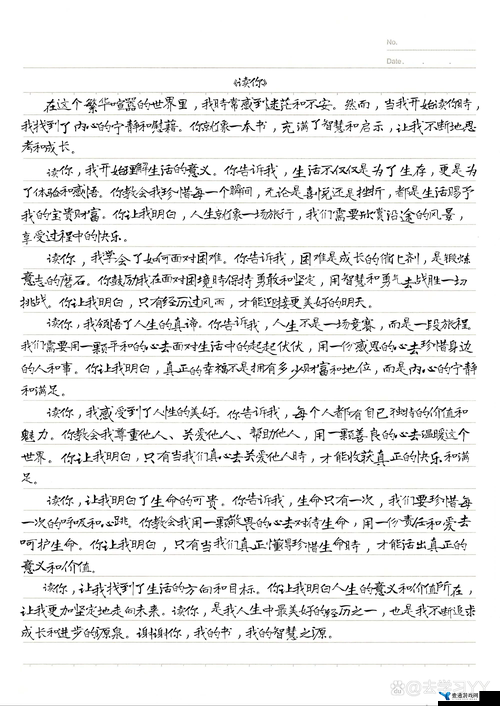 No.
Date. . .
《读你》
在这个繁华喧嚣的世界里，我时常感到迷茫和不安。然而，当我开始读你时，
我找到了内心的宁静和慰藉。你就像一本书，充满了智慧和启示，让我不断地思
考和成长。
读你，我开始理解生活的意义。你告诉我，生活不仅仅是为了生存，更是为
了体验和感悟。你教会我珍惜每一个瞬间，无论是喜悦还是挫折，都是生活赐予
我的宝贵财富。你让我明白，人生就像一场旅行，我们需要欣赏沿途的风景，
享受过程中的快乐。
读你，我学会了如何面对困难。你告诉我，困难是成长的催化剂，是锻炼
意志的磨石。你鼓励我在面对困境时保持勇敢和坚定，用智慧和勇气去战胜一切
挑战。你让我明白，只有经历过风雨，才能迎接更美好的明天。
读你，我领悟了人生的真谛。你告诉我，人生不是一场竞赛，而是一段旅程。
我们需要用一颗平和的心去面对生活中的起起伏伏，用一份感恩的心去珍惜身边
的人和事。你让我明白，真正的幸福不是拥有多少财富和地位，而是内心的宁静
和满足。
读你，我感受到了人性的美好。你告诉我，每个人都有自己独特的价值和
魅力。你教会我尊重他人、关爱他人、帮助他人，用一颗善良的心去温暖这个
世界。你让我明白，只有当我们真心去关爱他人时，才能收获真正的快乐和满
足。
读你，让我明白了生命的可贵。你告诉我，生命只有一次，我们要珍惜每
一次的呼吸和心跳。你教会我用一颗敬畏的心去对待生命，用一份责任和爱去
呵护生命。你让我明白，只有当我们真正懂得珍惜生命时，才能活出真正的
意义和价值。
读你，让我找到了生活的方向和目标。你让我明白人生的意义和价值所在，
让我更加坚定地走向未来。读你，是我人生中最美好的经历之一，也是我不断追求
成长和进步的源泉。谢谢你，我的书，我的智慧之源。
@去学习YY
壹通游戏网